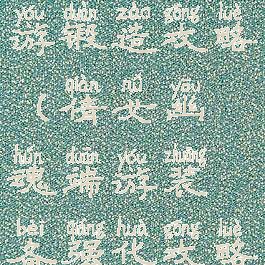 yóu duàn zào gōng lüè
游锻造攻略
qiàn nǚ yōu
(倩女幽
hún duān yóu zhuāng
魂端游装
bèi qiáng huà gōng lüè
备强化攻略